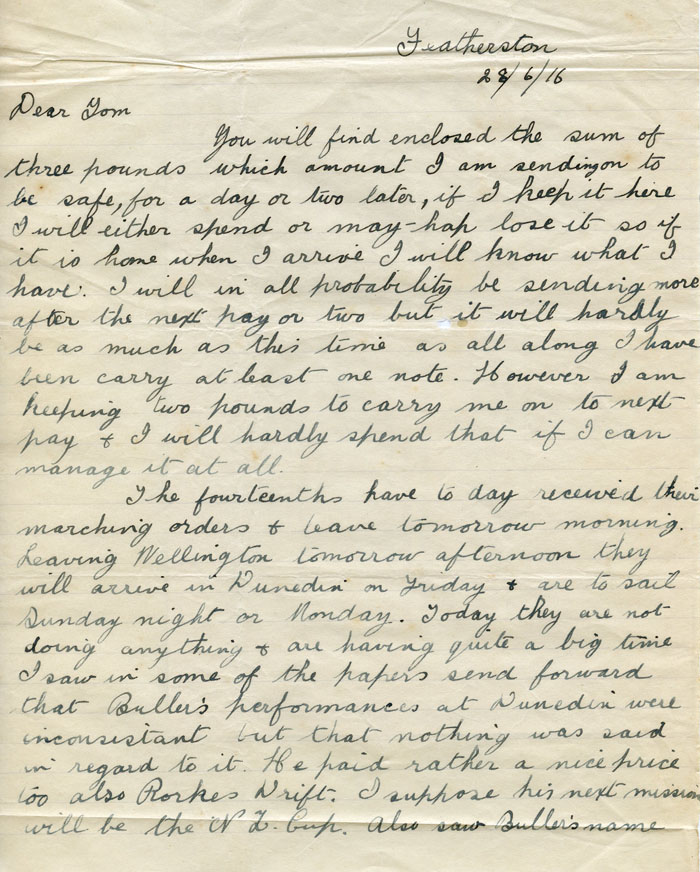 Featherston
28/6/16
Dear Tom
You will find enclosed the sum of
three pounds which amount I am sending on to
be safe, for a day or two later, if I keep it here
I will either spend or may-hap lose it so if
it is home when I arrive I will know what I
have. I will in all probability be sending more
after the next pay or two but it will hardly
be as much as this time as all along I have
been carry at least one note. However I am
keeping two pounds to carry me on to next
pay & I will hardly spend that if I can
manage it at all.
The fourteenths have to day received their
marching orders & leave tomorrow morning.
Leaving Wellington tomorrow afternoon they
will arrive in Dunedin on Friday & are to sail
Sunday night or Monday. Today they are not
doing anything & are having quite a big time
I saw in some of the papers send forward
that Buller's performances at Dunedin were
inconsistant but that nothing was said
in regard to it. He paid rather a nice price
too also Rorkes Drift. I suppose his next mission
will be the N Z. Cup. Also saw Buller's name